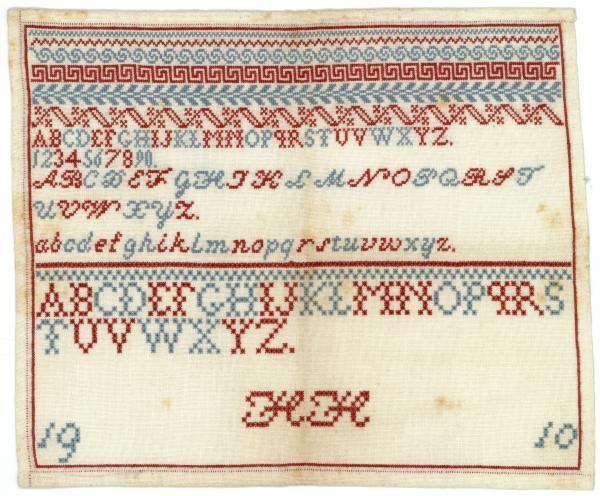 ABCDEFGHIJKLMNOPQRSTUVWXYZ.
1234567890.
ABCDEFGHIKLMNOPQRST
UVWXYZ.
abcdefghiklmnopqrstuvwxyz.
ABCDEFGHIJKLMNOPQRS
TUVWXYZ.
HH
19 10